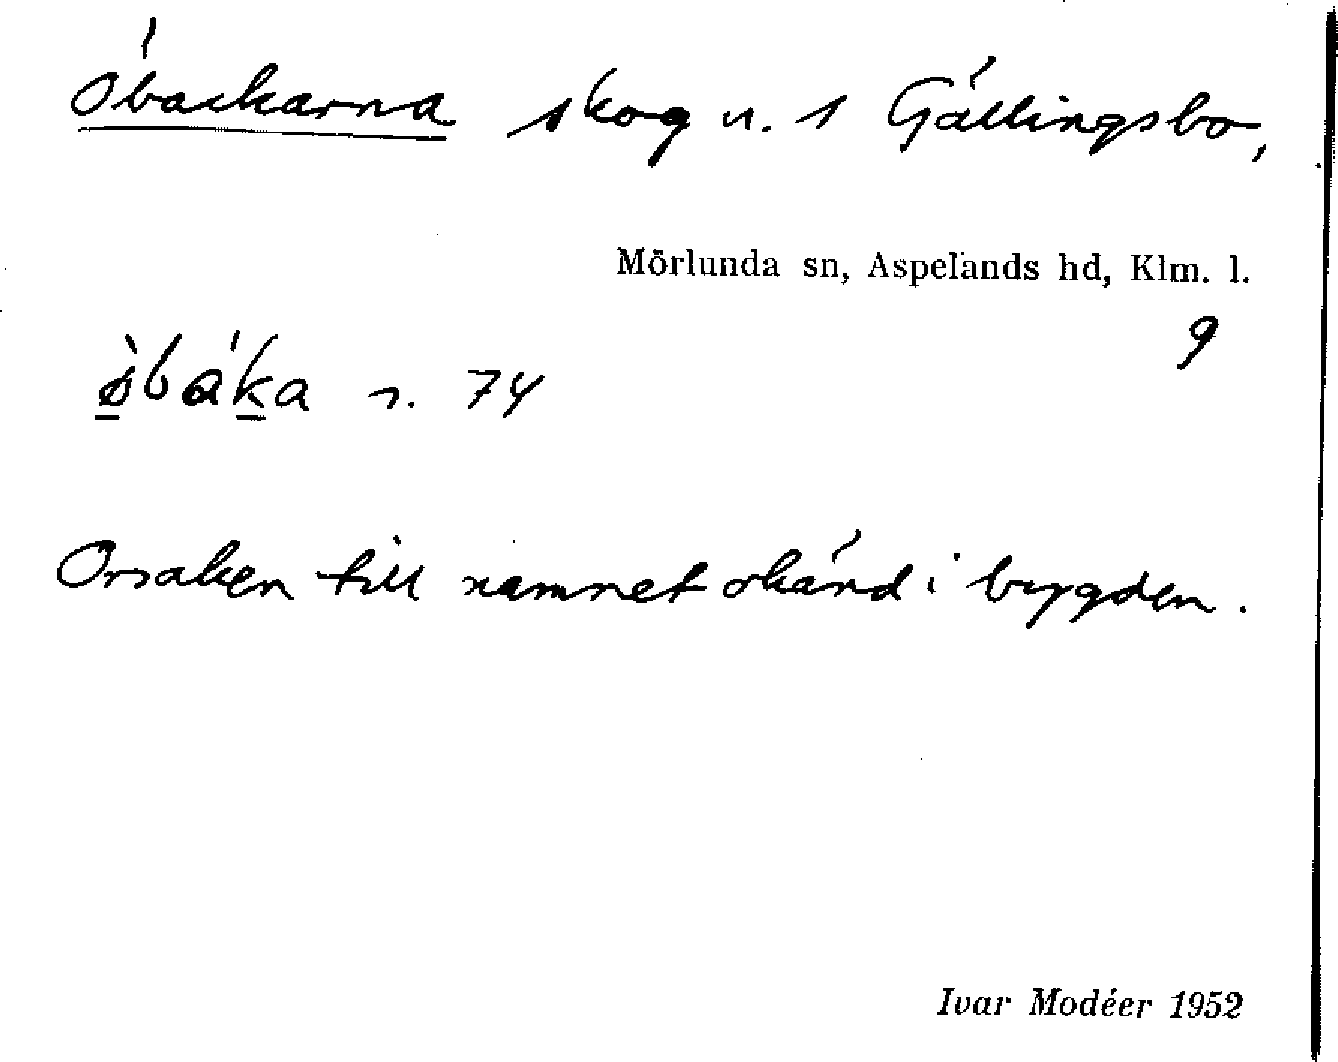 Öbackarna skog u. 1 Gällingsbo,
Mörlunda sn, Aspelands hd, Klm. l.
9
s. 74
Orsaken till namnet okänd i bygden.
Ivar Modéer 1952